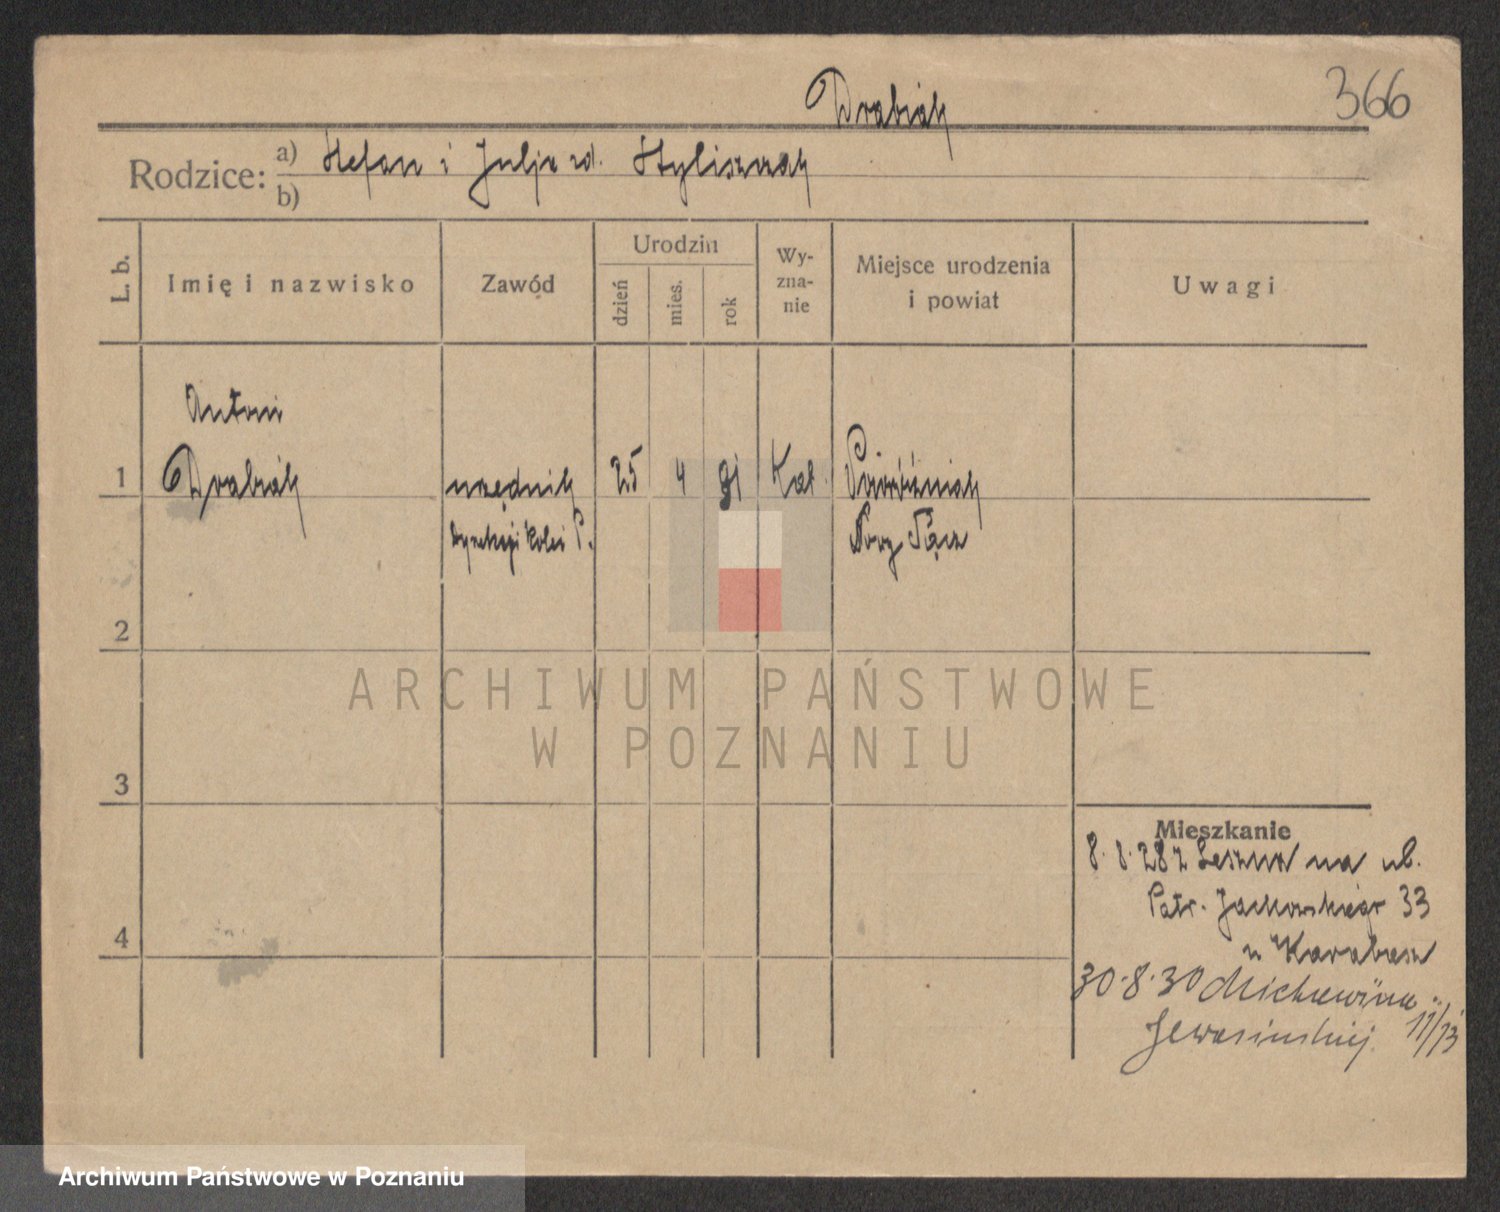 Drabik
366
Rodzice: a) Stefan i Julja zd.
b)
L. b.
Imię i nazwisko
Zawód
Urodzin
dzień
mies.
rok
Wy-
zna-
nie
Miejsce urodzenia
i powiat
Uwagi
Antoni
1 Drabik urzędnik 25 4 91 Kat.
Dyrekcji Kolei P. Nowy Sącz
2
3
4
ARCHIWUM PAŃSTWOWE
W POZNANIU
Mieszkanie
8.8.28 z Leszna na ul.
Patr. Jackowskiego 33
u
30.8.30
11/13
Archiwum Państwowe w Poznaniu